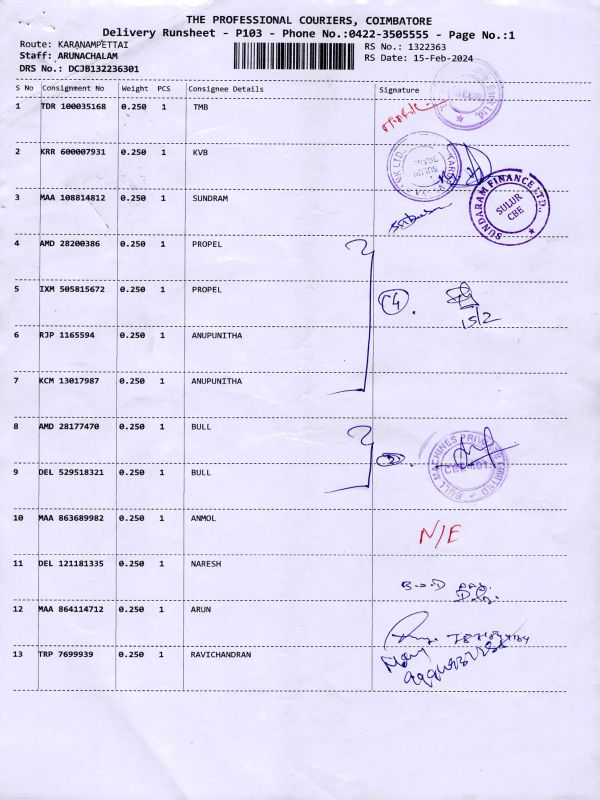 THE PROFESSIONAL COURIERS, COIMBATORE
Delivery Runsheet - P103 - Phone No.:0422-3505555 - Page No.:1
Route: KARANAMPETTAI RS No.: 1322363
Staff: ARUNACHALAM RS Date: 15-Feb-2024
DRS No.: DCJB132236301
S No Consignment No Weight PCS Consignee Details Signature
1 TDR 100035168 0.250 1 TMB
2 KRR 600007931 0.250 1 KVB
3 MAA 108814812 0.250 1 SUNDRAM
SUNDARAM FINANCE LTD.,
SULUR
CBE
4 AMD 28200386 0.250 1 PROPEL
5 IXM 505815672 0.250 1 PROPEL
C4
15/2
6 RJP 1165594 0.250 1 ANUPUNITHA
7 KCM 13017987 0.250 1 ANUPUNITHA
8 AMD 28177470 0.250 1 BULL
BULL MACHINES PRIVATE LIMITED
9 DEL 529518321 0.250 1 BULL
10 MAA 863689982 0.250 1 ANMOL
N/E
11 DEL 121181335 0.250 1 NARESH
12 MAA 864114712 0.250 1 ARUN
13 TRP 7699939 0.250 1 RAVICHANDRAN